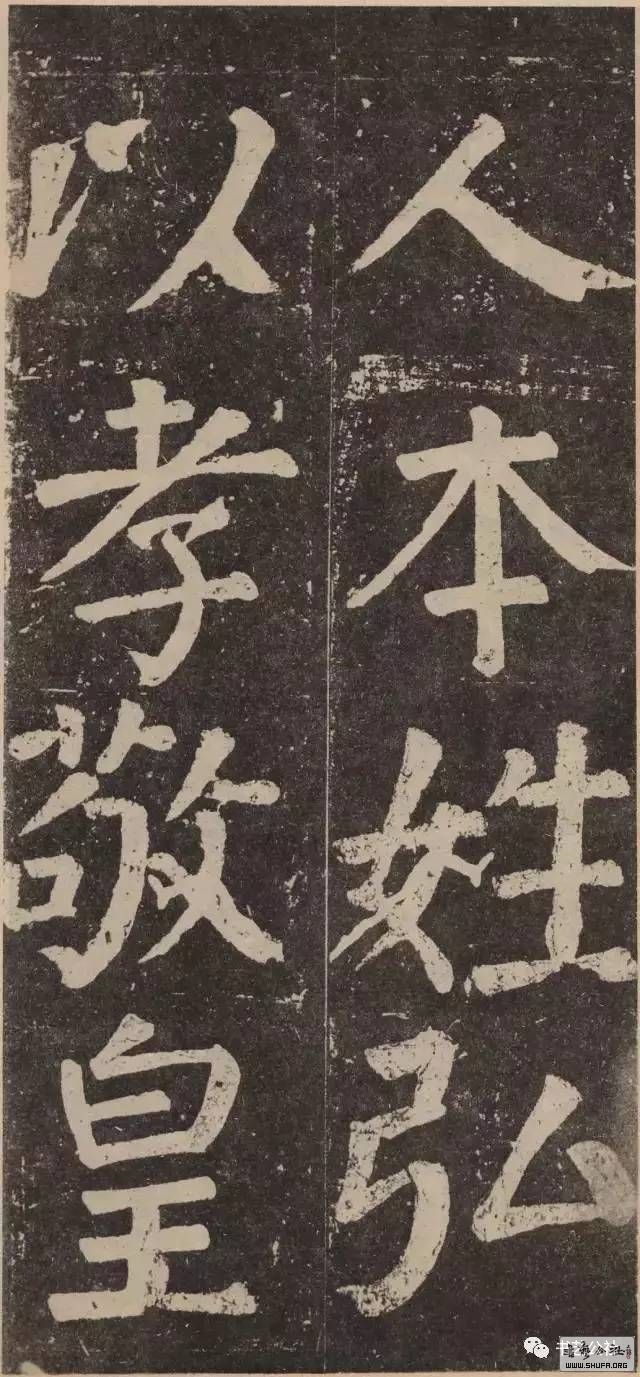 人本姓弘
以孝敬皇
书艺公社
WWW.SHUFA.ORG